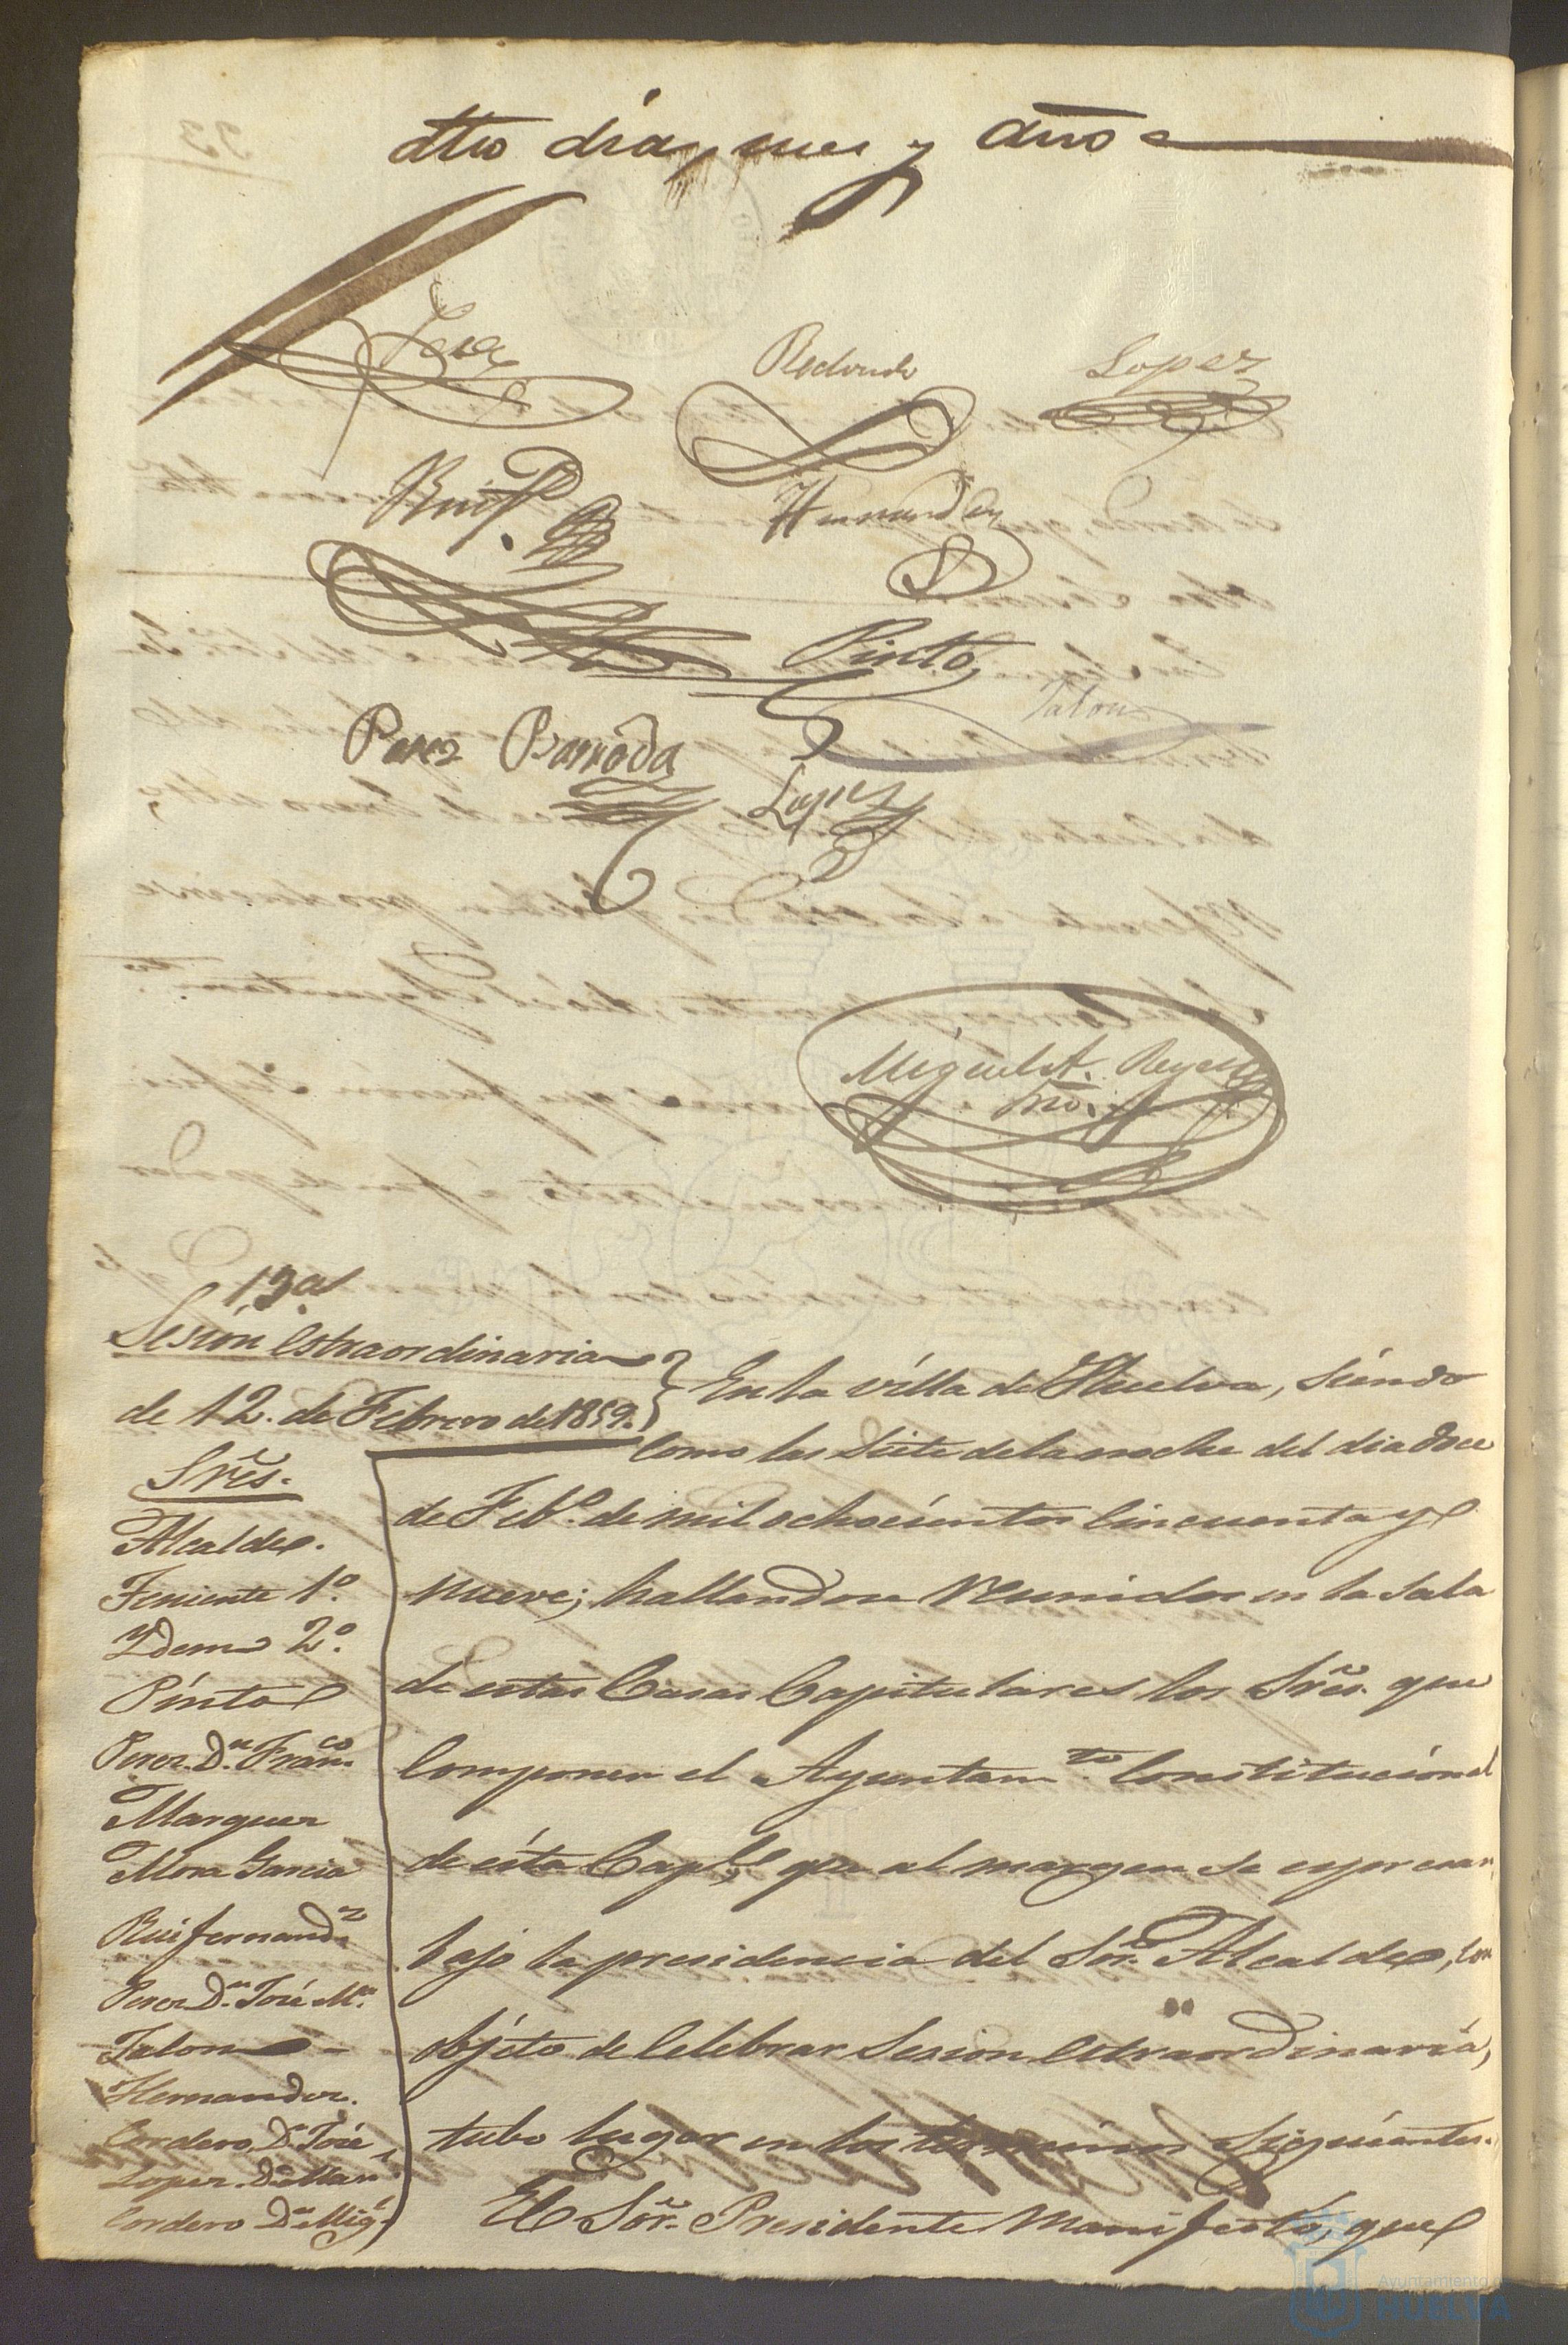 dho dia, mes y año
Redondo Lopez
Ruiz
Hernandez
Pinto
Talon
Perez Barroda
Lopez
Miguel A. Reyes
Srio.
13ª
Sesion estraordinaria
de 12. de Febrero de 1859.
Srẽs.
Alcalde.
Teniente 1º.
Ydem 2º.
Pinto
Perez Dn. Franco.
Marquez
Mora Garcia
Ruifernandz
Perez Dn. José Mª.
Talon
Hernandez.
Cordero Dn. José
Lopez Dn. Manl.
Cordero Dn. Migl.
En la villa de Huelva, siendo
como las siete de la noche del dia doce
de Febº. de mil ochocientos cincuenta y
nueve; hallandose reunidos en la Sala
de estas Casas Capitulares los Srẽs. que
componen el Ayuntamto. Constitucional
de ésta Capl., que al margen se espresan
bajo la presidencia del Sor. Alcalde, con
objeto de celebrar Sesion estraordinaria,
tubo lugar en los terminos siguientes.
El Sor. Presidente manifestó, que
Ayuntamiento
HUELVA